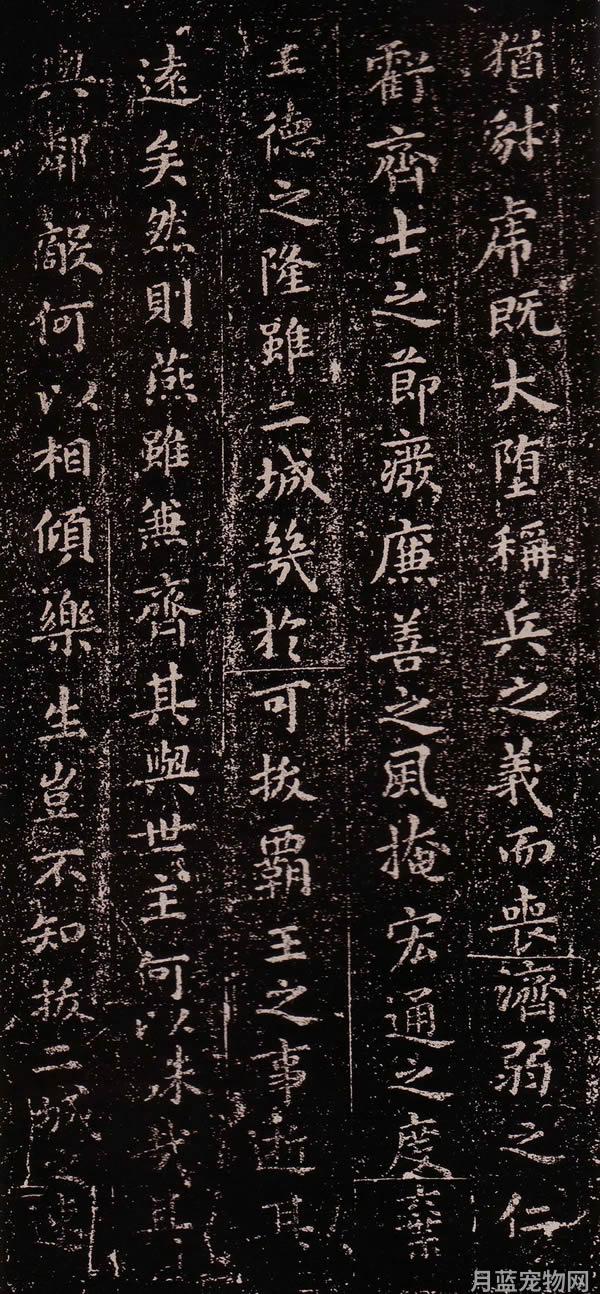 猶豺虎既大堕稱兵之義而喪濟弱之仁
虧齊士之節廢廉善之風掩宏通之度棄
王德之隆雖二城幾於可拔霸王之事逝其
遠矣然則燕雖兼齊其與世主何以殊哉其
與鄰敵何以相傾樂生豈不知拔二城之速
月蓝宠物网